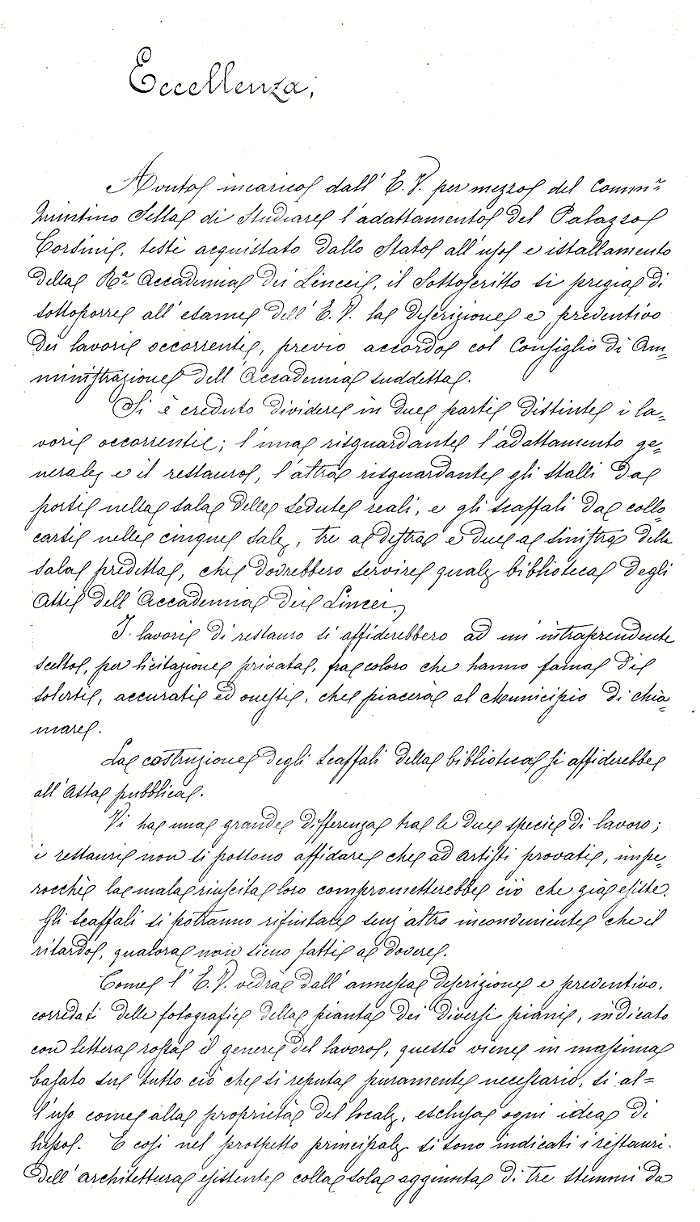 Eccellenza,
Avuto incarico dall'E.V. per mezzo del Comm.r
Quintino Sella di studiare l'adattamento del Palazzo
Corsini, testè acquistato dallo Stato all'uso e istallamento
della R.a Accademia dei Lincei, il sottoscritto si pregia di
sottoporre all'esame dell'E.V. la descrizione e preventivo
dei lavori occorrenti, previo accordo col Consiglio di Am=
ministrazione dell'Accademia suddetta.
Si è creduto dividere in due parti distinte i la=
vori occorrenti; l'una risguardante l'adattamento ge=
nerale e il restauro, l'altra risguardante gli stalli da
porsi nella sala delle sedute reali, e gli scaffali da collo=
carsi nelle cinque sale, tre a destra e due a sinistra della
sala predetta, che dovrebbero servire quale biblioteca degli
Atti dell'Accademia dei Lincei.
I lavori di restauro si affiderebbero ad un'intraprendente
scelto, per licitazione privata, fra coloro che hanno fama di
solerti, accurati ed onesti, che piacerà al Municipio di chia=
mare.
La costruzione degli scaffali della biblioteca si affiderebbe
all'asta pubblica.
Vi ha una grande differenza tra le due specie di lavoro;
i restauri non si possono affidare che ad artisti provati, impe=
rocchè la mala riuscita loro comprometterebbe ciò che già esiste.
Gli scaffali si potranno rifiutare senz'altro inconveniente che il
ritardo, qualora non sieno fatti a dovere.
Come l'E.V. vedrà dall'annessa descrizione e preventivo,
corredati delle fotografie della pianta dei diversi piani, indicato
con lettera rossa il genere del lavoro, questo viene in massima
basato su tutto ciò che si reputa puramente necessario, sì al=
l'uso come alla proprietà del locale, esclusa ogni idea di
lusso. E così nel prospetto principale si sono indicati i restauri
dell'architettura esistente colla sola aggiunta di tre stemmi da